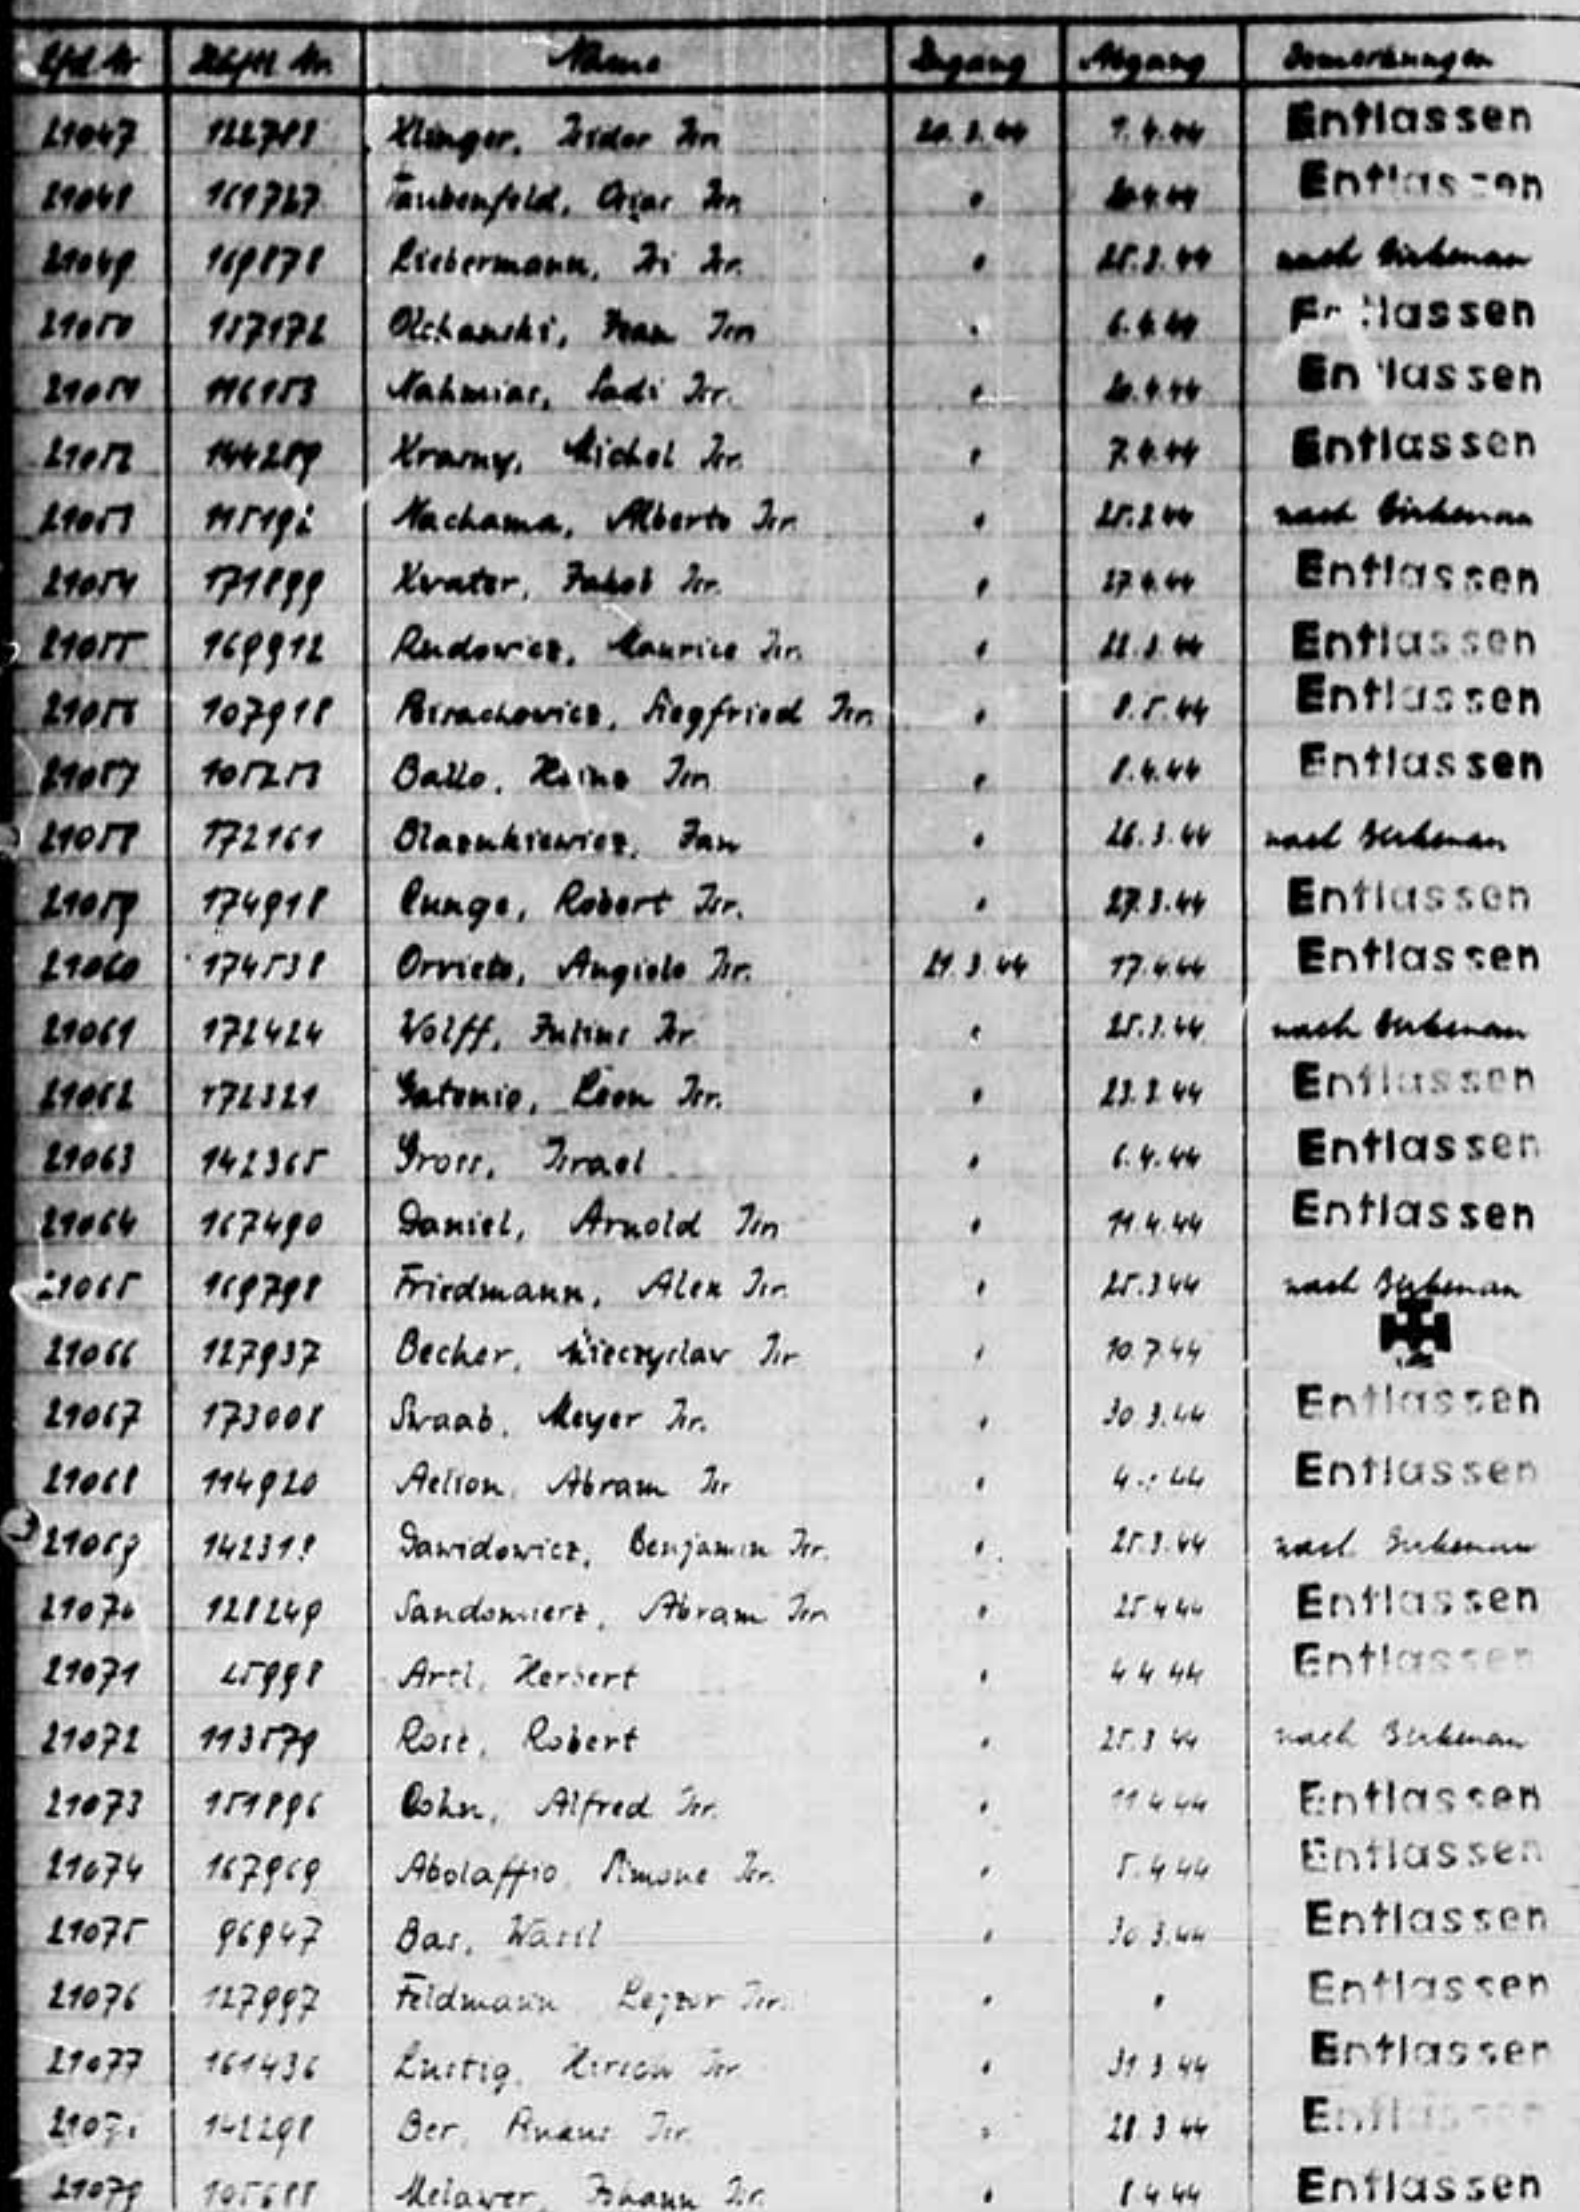 Lfd Nr Häftl Nr. Name Zugang Abgang Bemerkungen
21047 122788 Klinger, Isidor Isr. 20.3.44 1.4.44 Entlassen
21048 169727 Taubenfeld, Oscar Isr. " 20.4.44 Entlassen
21049 169878 Liebermann, Isr. " 25.3.44 nach Birkenau
21050 157172 Olchanski, Isr. " 6.4.44 Entlassen
21051 116153 Nahmias, Sadi Isr. " 20.4.44 Entlassen
21052 144259 Krasny, Michel Isr. " 7.4.44 Entlassen
21053 115192 Nachama, Alberto Isr. " 25.3.44 nach Birkenau
21054 171899 Kwater, Jakob Isr. " 27.4.44 Entlassen
21055 169912 Rudowicz, Maurice Isr. " 22.3.44 Entlassen
21056 107918 Siegfried Isr. " 8.5.44 Entlassen
21057 105253 Ballo, Heinz Isr. " 8.4.44 Entlassen
21058 172161 Olazukiewicz, Jan " 26.3.44 nach Birkenau
21059 174918 Cunge, Robert Isr. " 27.3.44 Entlassen
21060 174538 Orvieto, Angiolo Isr. 21.3.44 17.4.44 Entlassen
21061 172424 Wolff, Julius Isr. " 25.3.44 nach Birkenau
21062 172321 Gatenio, Leon Isr. " 23.3.44 Entlassen
21063 142365 Gross, Israel " 6.4.44 Entlassen
21064 167490 Daniel, Arnold Isr. " 11.4.44 Entlassen
21065 169798 Friedmann, Alex Isr. " 25.3.44 nach Birkenau
21066 127937 Becher, Mieczyslaw Isr. " 10.7.44
21067 173008 Swaab, Meyer Isr. " 30.3.44 Entlassen
21068 114920 Aelion, Abram Isr. " Entlassen
21069 Dawidowicz, Benjamin Isr. " 25.3.44 nach Birkenau
21070 128249 Sandomierz, Abram Isr. " 25.4.44 Entlassen
21071 25998 Artl, Herbert " 4.4.44 Entlassen
21072 113579 Robert " 25.3.44 nach Birkenau
21073 151896 Cohn, Alfred Isr. " 11.4.44 Entlassen
21074 167969 Abolaffio, Simone Isr. " 5.4.44 Entlassen
21075 96947 Bas, Wasil " 30.3.44 Entlassen
21076 127997 Feldmann Lejzor Isr. " " Entlassen
21077 161436 Lustig, Hersch Isr. " 31.3.44 Entlassen
142298 Ber, Isr. " 28.3.44 Entlassen
21079 105688 Melawer, Johann Isr. " 8.4.44 Entlassen